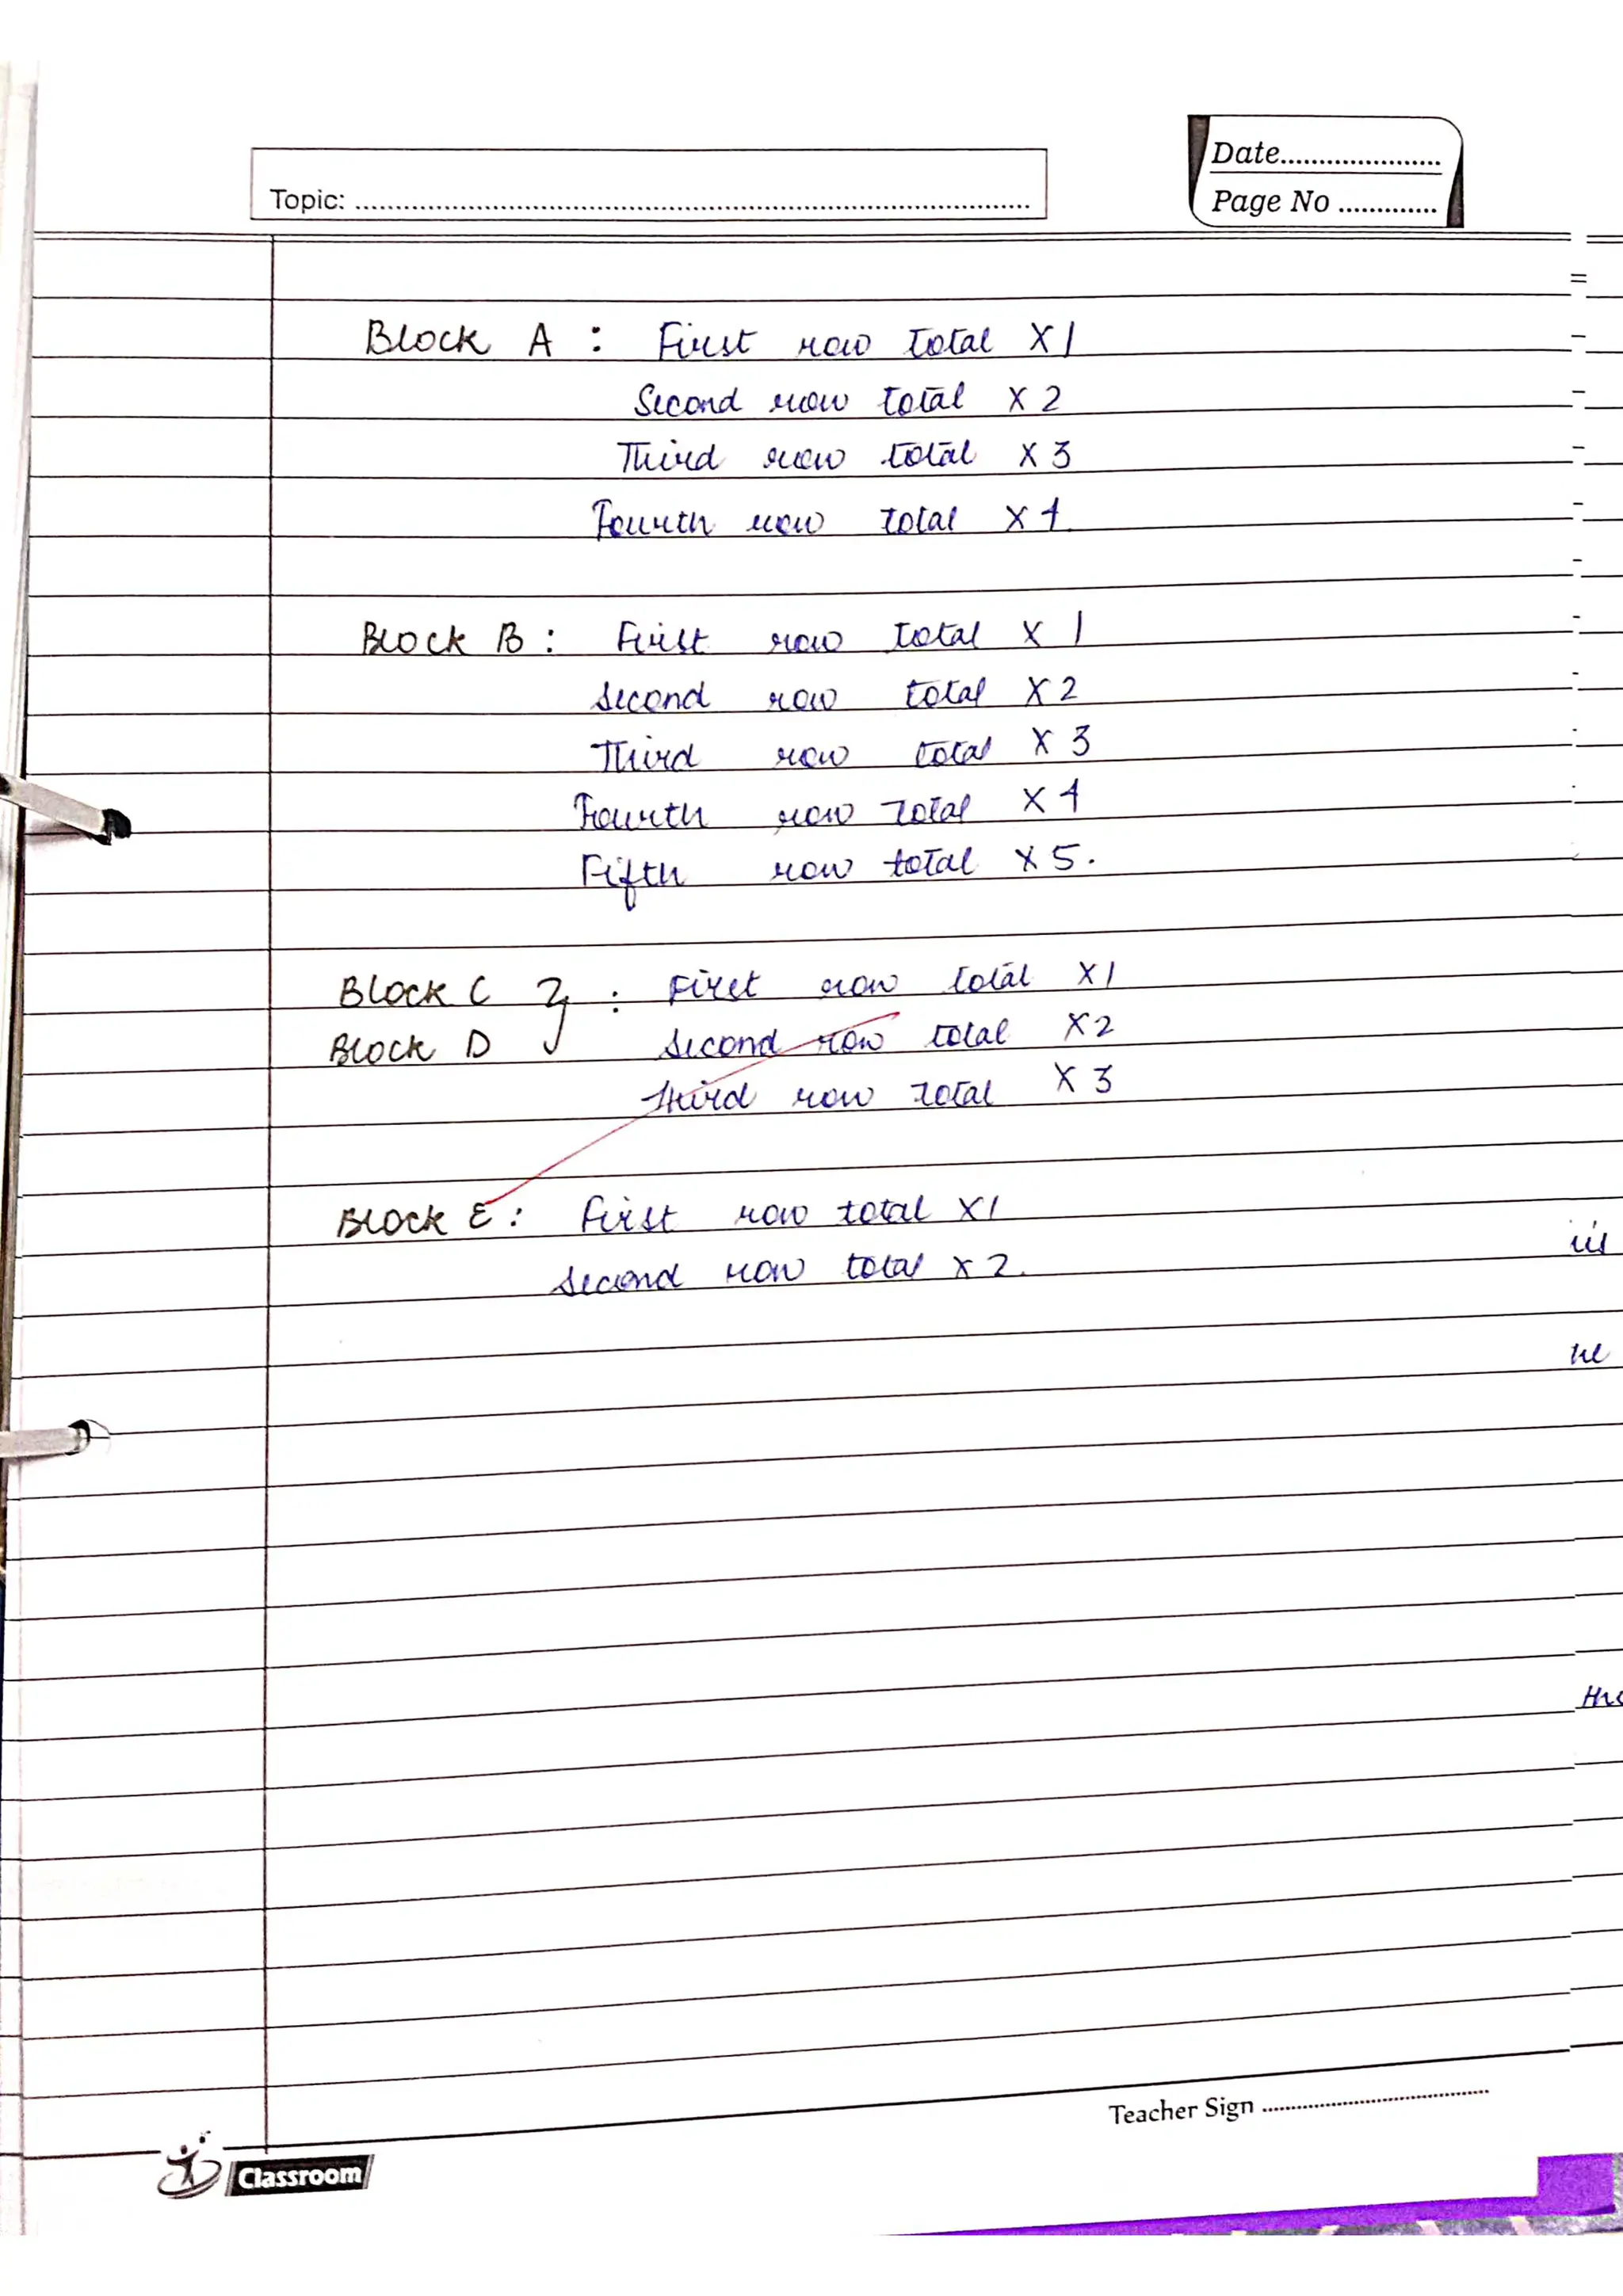 Topic: ........................................
Date.....................
Page No .............
Block A : First row total X 1
Second row total X 2
Third row total X 3
Fourth row total X 4.
Block B : First row total X 1
Second row total X 2
Third row total X 3
Fourth row total X 4
Fifth row total X 5.
Block C } : First row total X1
Block D Second row total X2
Third row total X 3
Block E : First row total X1
Second row total X 2.
Teacher Sign ........................................
Classroom